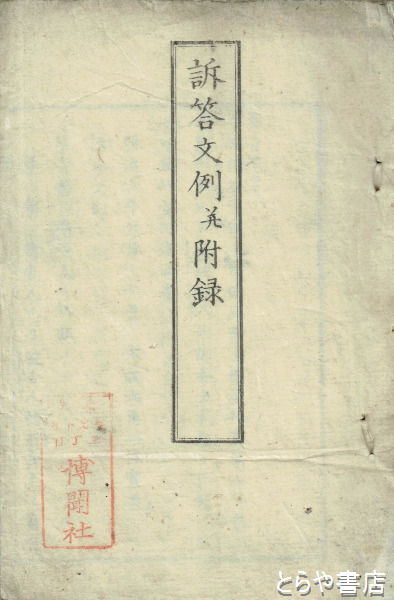 訴答文例并附録
博聞社
とらや書店